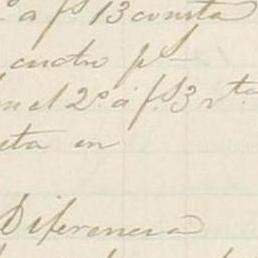 º a fs 13 consta
cuatro ps
en el 2º a fs 3 vta
ta en
Diferencia